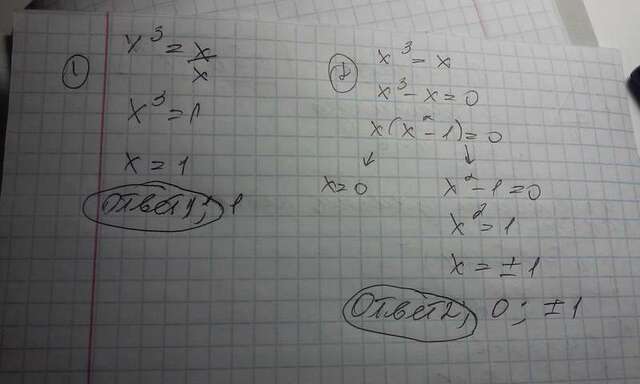 1
x³ = x/x
x³ = 1
x = 1
Ответ: 1
2
x³ = x
x³ - x = 0
x(x² - 1) = 0
x = 0
x² - 1 = 0
x² = 1
x = ±1
Ответ: 0; ±1